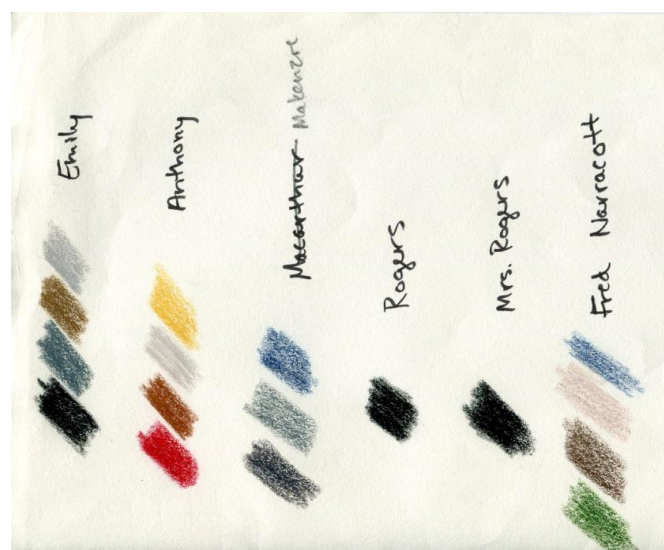 Emily
Anthony
Macarthur Makenzie
Rogers
Mrs. Rogers
Fred Narracott